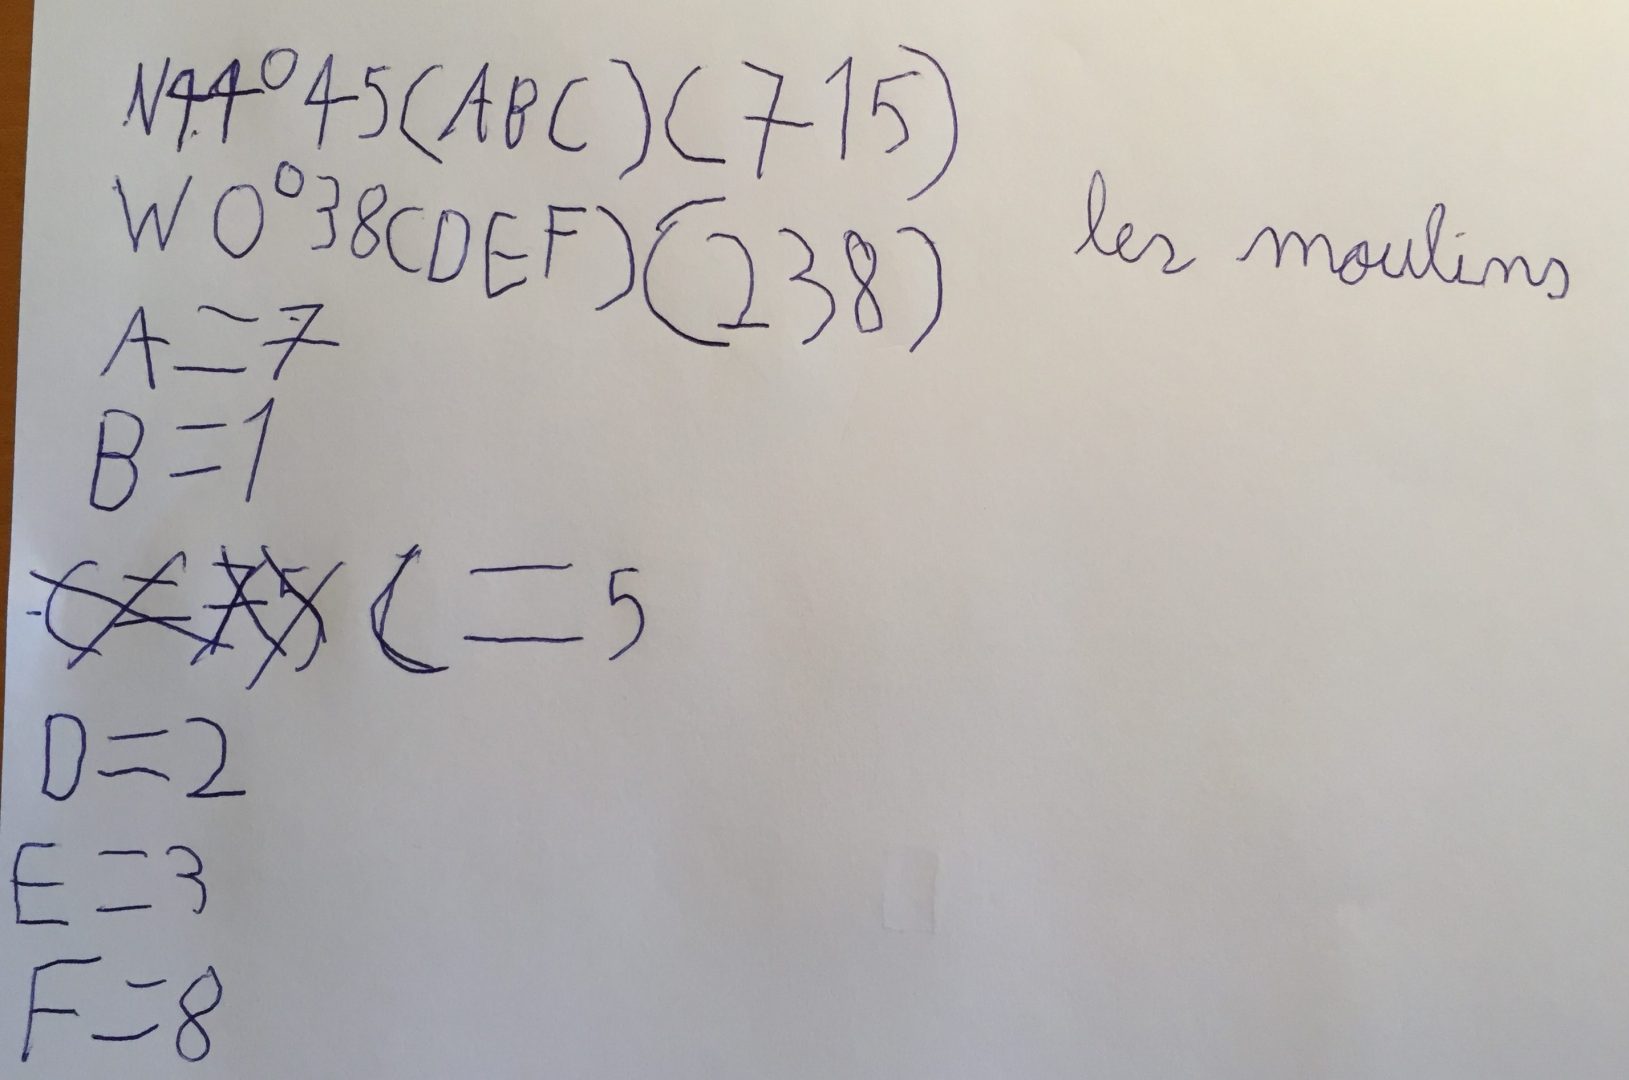 N44°45(ABC)(715)
W0°38(DEF)(238)
les moulins
A=7
B=1
C=5
D=2
E=3
F=8